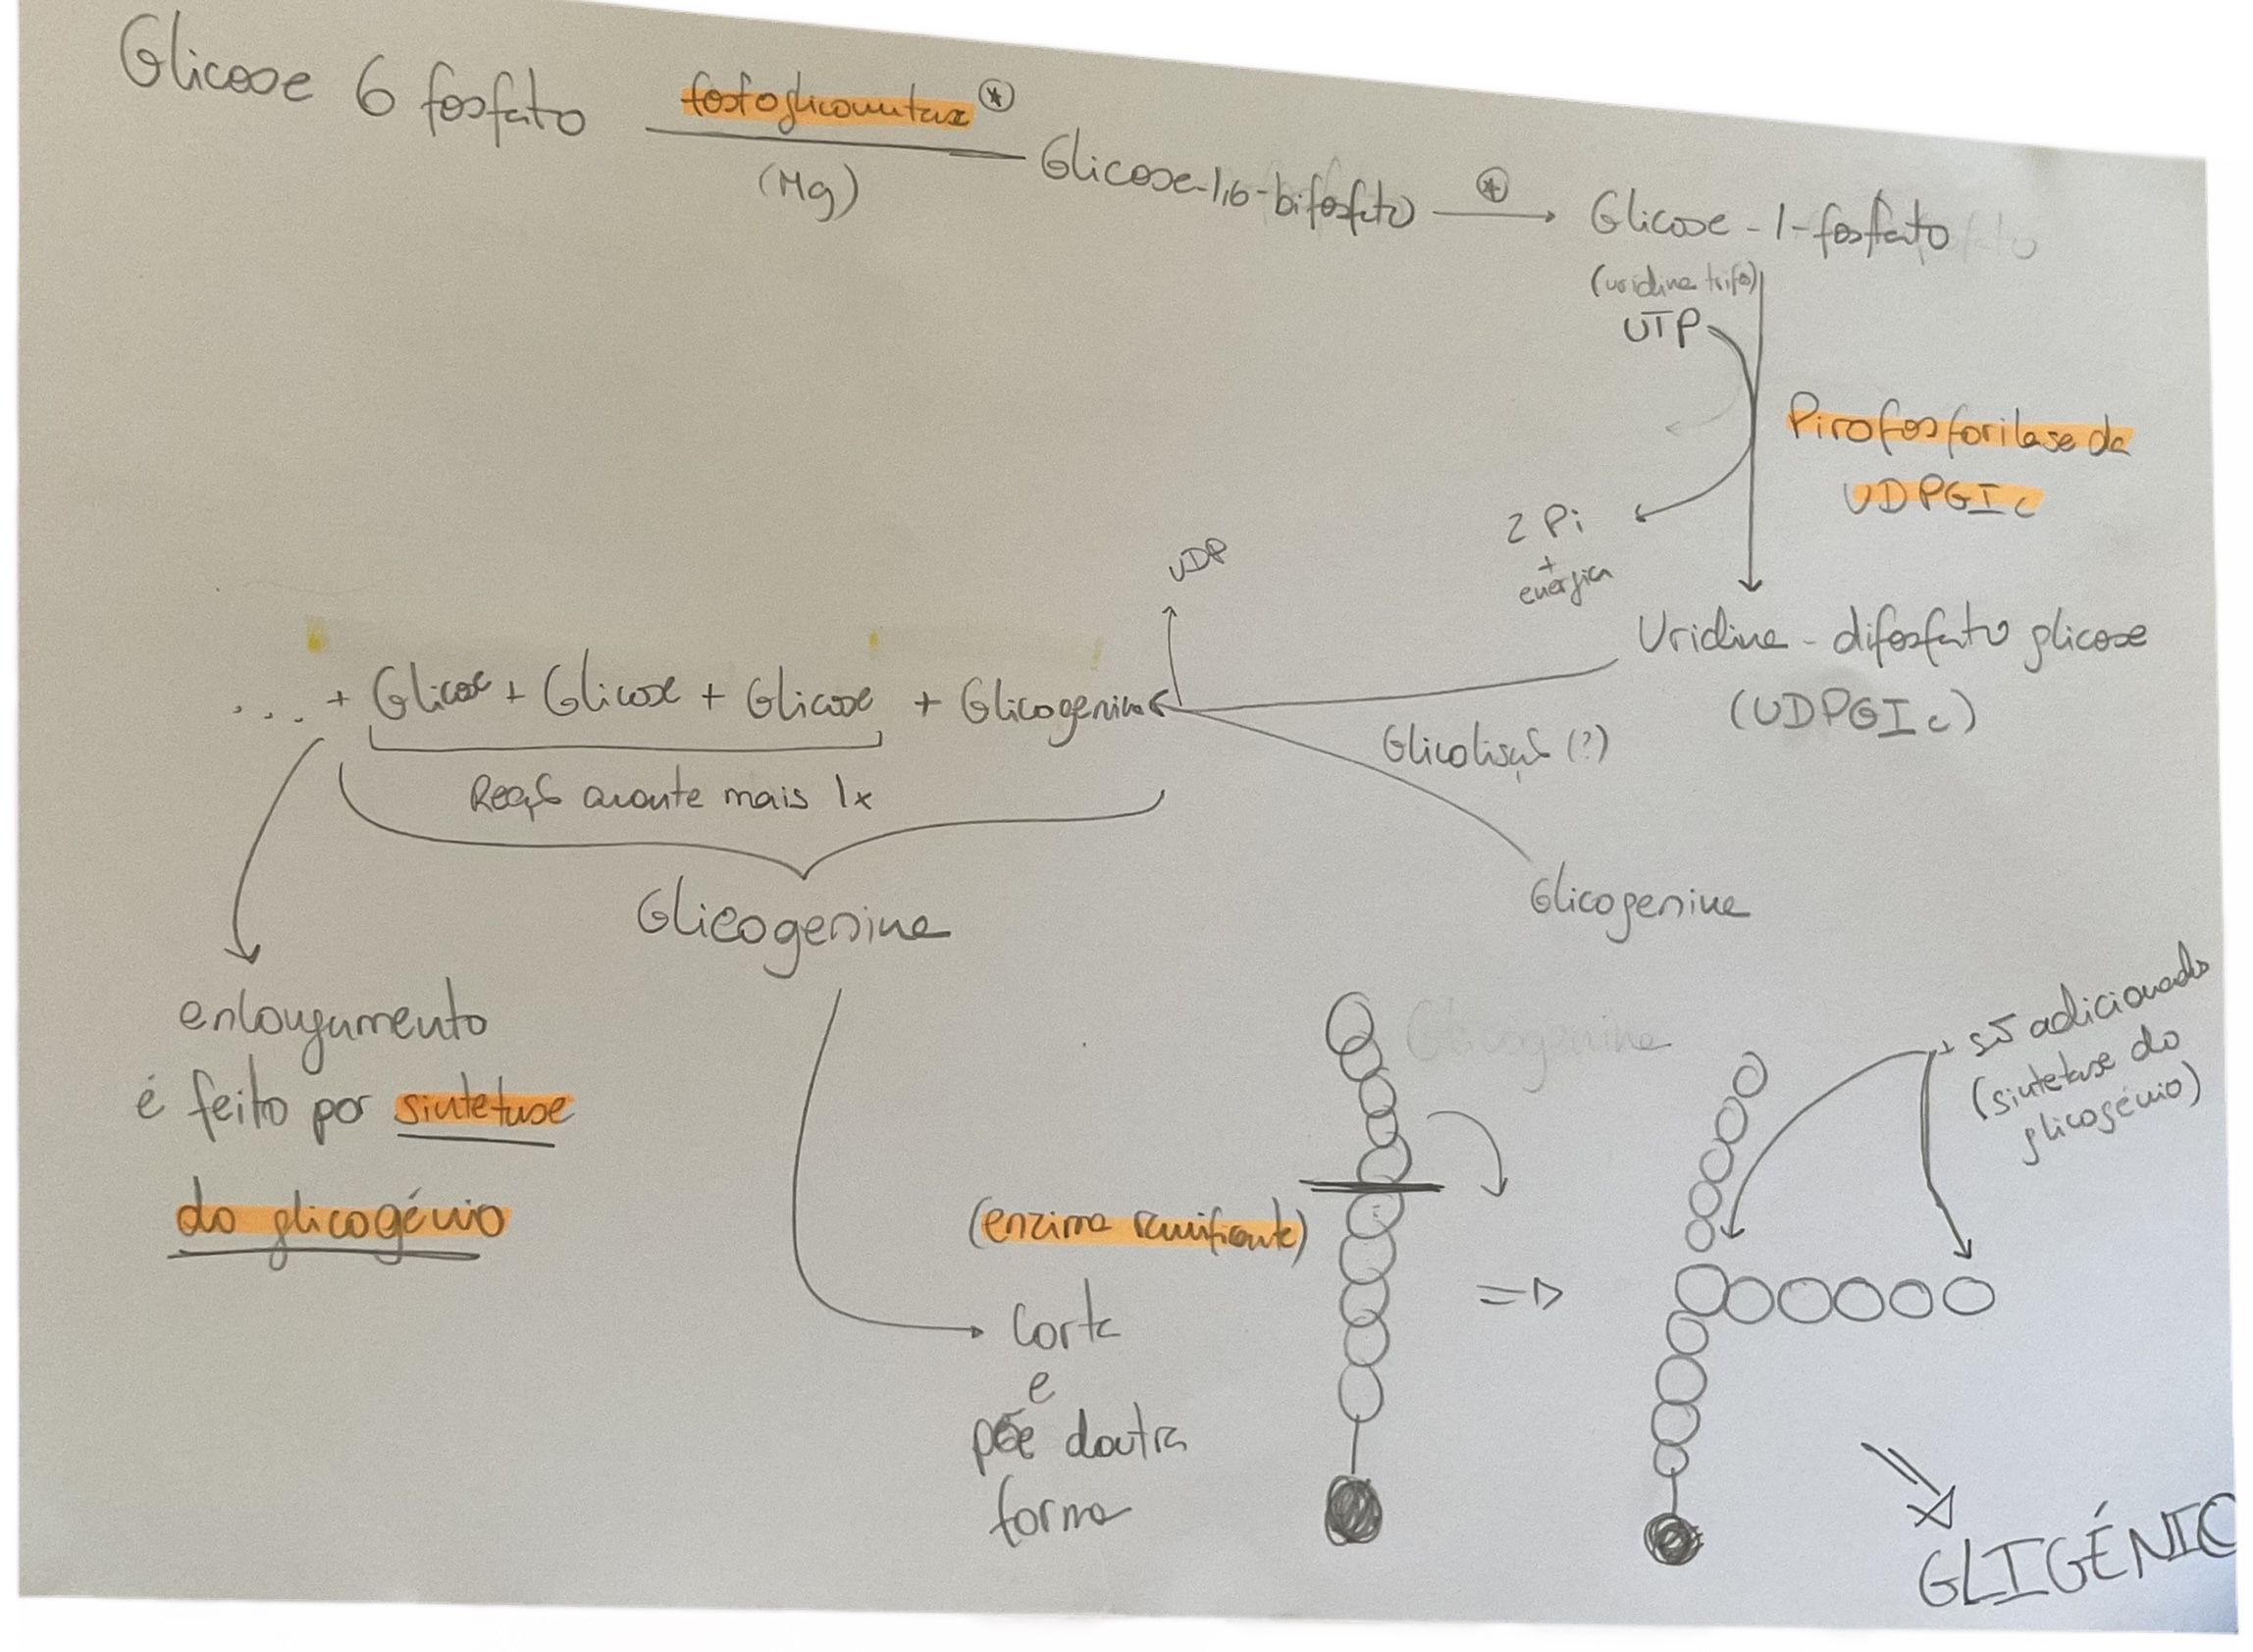 Glicose 6 fosfato
fosfoglicomutase *
(Mg)
Glicose-1,6-bifosfato
*
Glicose-1-fosfato
(uridina trifo)
UTP
Pirofosforilase da
UDPGlc
2 Pi
+
energia
UDP
Uridina-difosfato glicose
(UDPGlc)
... + Glicose + Glicose + Glicose + Glicogenina
Glicolisação (?)
Reação aconte mais 1x
Glicogenina
Glicogenina
enlongamento
é feito por sintetase
do glicogénio
Glicogenina
+ são adicionados
(sintetase do
glicogénio)
(enzima ramificante)
Corta
e
põe doutra
forma
GLIGÉNIO